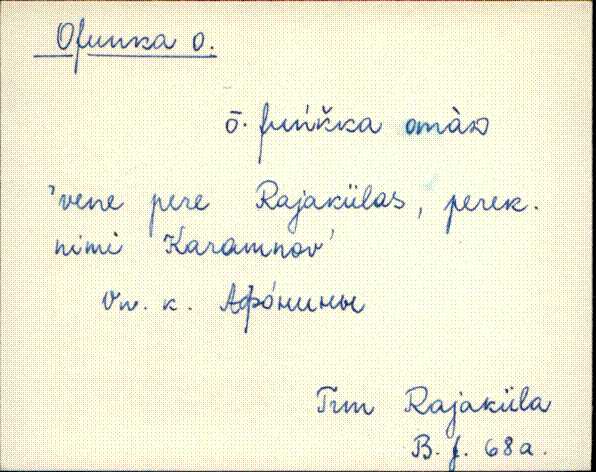 Ofunka o.
ō. fuńk̆ka omàD
'vene pere Rajakülas, perek.
nimi Karamnov'
Vn. k. Афо́нины
Trm Rajaküla
B. J. 68a.